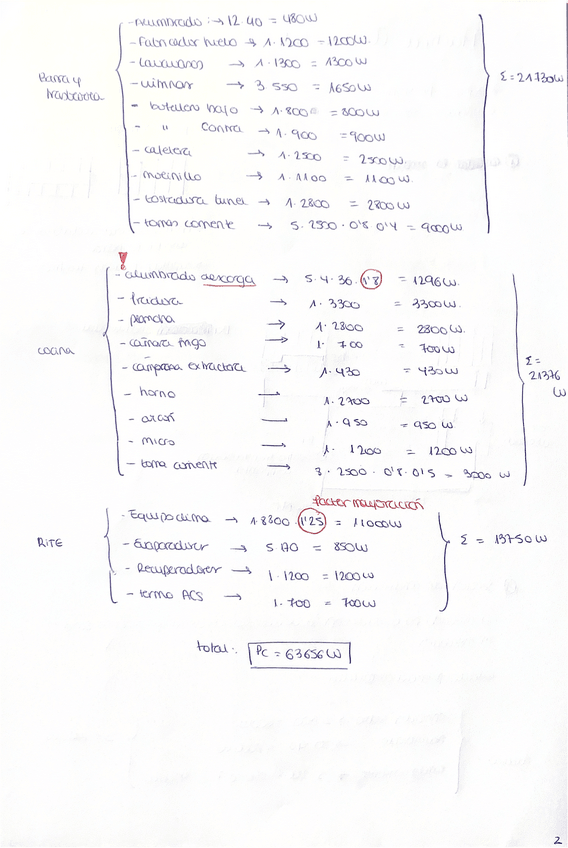 Barra y trasbarra
- Alumbrado :→ 12 40 = 480W
- Fabricador hielo → 1·1200 = 1200W.
- Lavavasos → 1·1300 = 1300W
→ 3·550 = 1650W
- botellero bajo → 1·800 = 800W
- " contra → 1·900 = 900W
- cafetera → 1·2500 = 2500W
- molinillo → 1·1100 = 1100W.
- tostadora tunel → 1·2800 = 2800W
- tomas corriente → 5·2500·0'8·0'4 = 9000W
Σ = 21730W
!
cocina
- alumbrado descarga → 5·4·36·1'8 = 1296W.
- freidora → 1·3300 = 3300W.
- plancha → 1·2800 = 2800W.
- cámara frigo → 1·700 = 700W
- campana extractora → 1·430 = 430W
- horno — 1·2700 = 2700W
- arcón — 1·950 = 950W
- micro — 1·1200 = 1200W
- toma corriente → 3·2500·0'8·0'5 = 3000W
Σ = 21376 W
factor mayoración
RITE
- Equipo clima → 1·8800·1'25 = 11000W
- Evaporadores → 5·170 = 850W
- Recuperadores → 1·1200 = 1200W
- termo ACS → 1·700 = 700W
Σ = 13750W
total:. Pc = 63656W
2